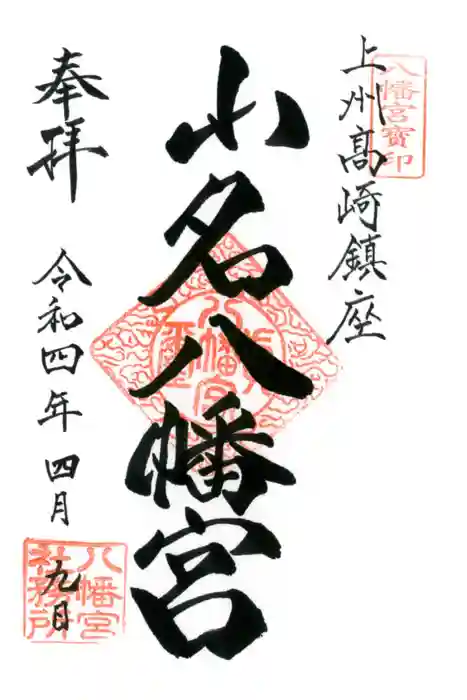 八幡宮寳印
上州髙崎鎮座
小名八幡宮
八幡宮
奉拝
令和四年四月九日
八幡宮社務所